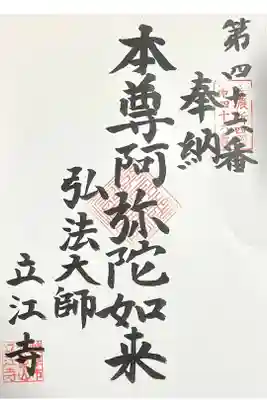 第四十六番
奉納
本尊阿弥陀如来
弘法大師
立江寺